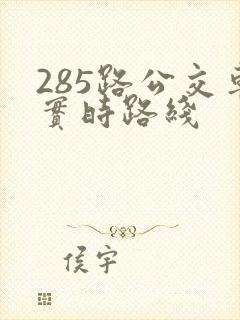 285路公交車
實時路綫
侯宇